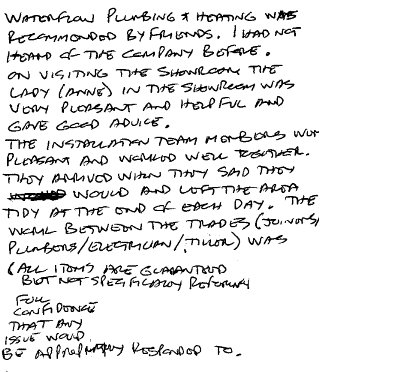 WATERFLOW PLUMBING & HEATING WAS
RECOMMENDED BY FRIENDS. I HAD NOT
HEARD OF THE COMPANY BEFORE.
ON VISITING THE SHOWROOM THE
LADY (ANNE) IN THE SHOWROOM WAS
VERY PLEASANT AND HELPFUL AND
GAVE GOOD ADVICE.
THE INSTALLATION TEAM MEMBERS
PLEASANT AND WORKED WELL TOGETHER.
THEY ARRIVED WHEN THEY SAID THEY
WOULD AND LEFT THE AREA
TIDY AT THE END OF EACH DAY. THE
WORK BETWEEN THE TRADES (JOINERS/
PLUMBERS/ELECTRICIAN/TILER) WAS
(ALL ITEMS ARE GUARANTEED
BUT NOT SPECIFICALLY
FULL
CONFIDENCE
THAT ANY
ISSUE WOULD
BE RESPONDED TO.